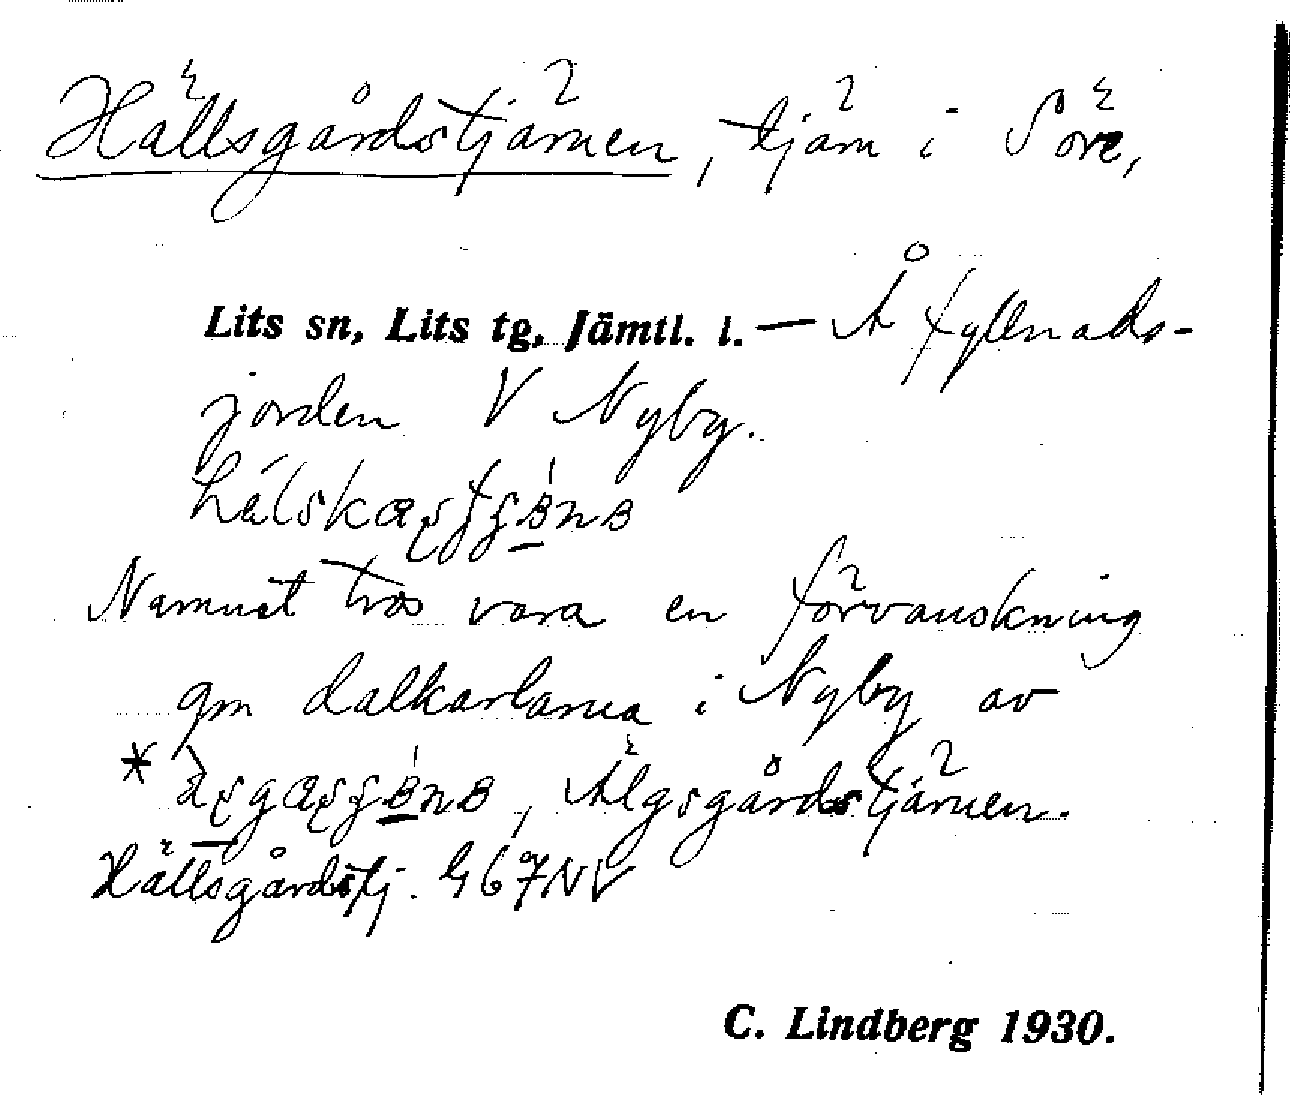 Hällsgårdstjärnen, tjärn i Söre,
Lits sn, Lits tg, Jämtl. l. — Å fyllnads-
jorden V Nyby.
Namnet tros vara en förvanskning
gm dalkarlarna i Nyby av
*, Älgsgårdstjärnen.
Hällsgårdstj. G67NV
C. Lindberg 1930.